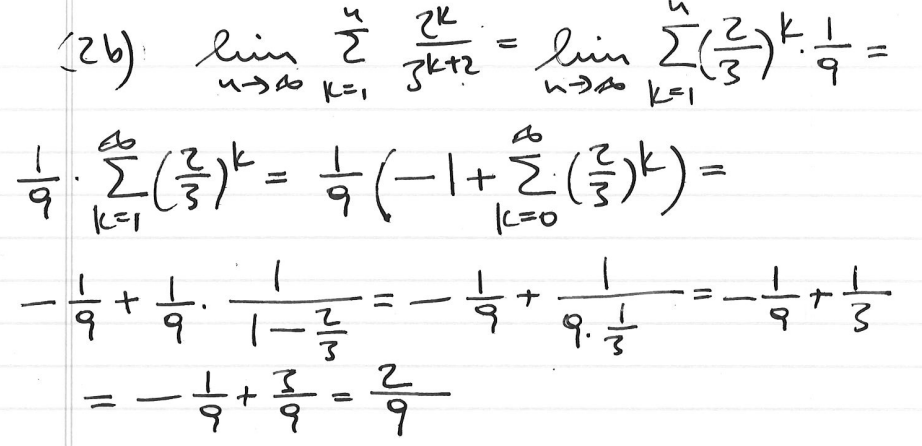 (2b) lim_{n→∞} Σ_{k=1}^{n} 2^k/3^{k+2} = lim_{n→∞} Σ_{k=1}^{n} (2/3)^k · 1/9 =
1/9 · Σ_{k=1}^{∞} (2/3)^k = 1/9 (−1 + Σ_{k=0}^{∞} (2/3)^k) =
−1/9 + 1/9 · 1/(1 − 2/3) = −1/9 + 1/(9 · 1/3) = −1/9 + 1/3
= −1/9 + 3/9 = 2/9